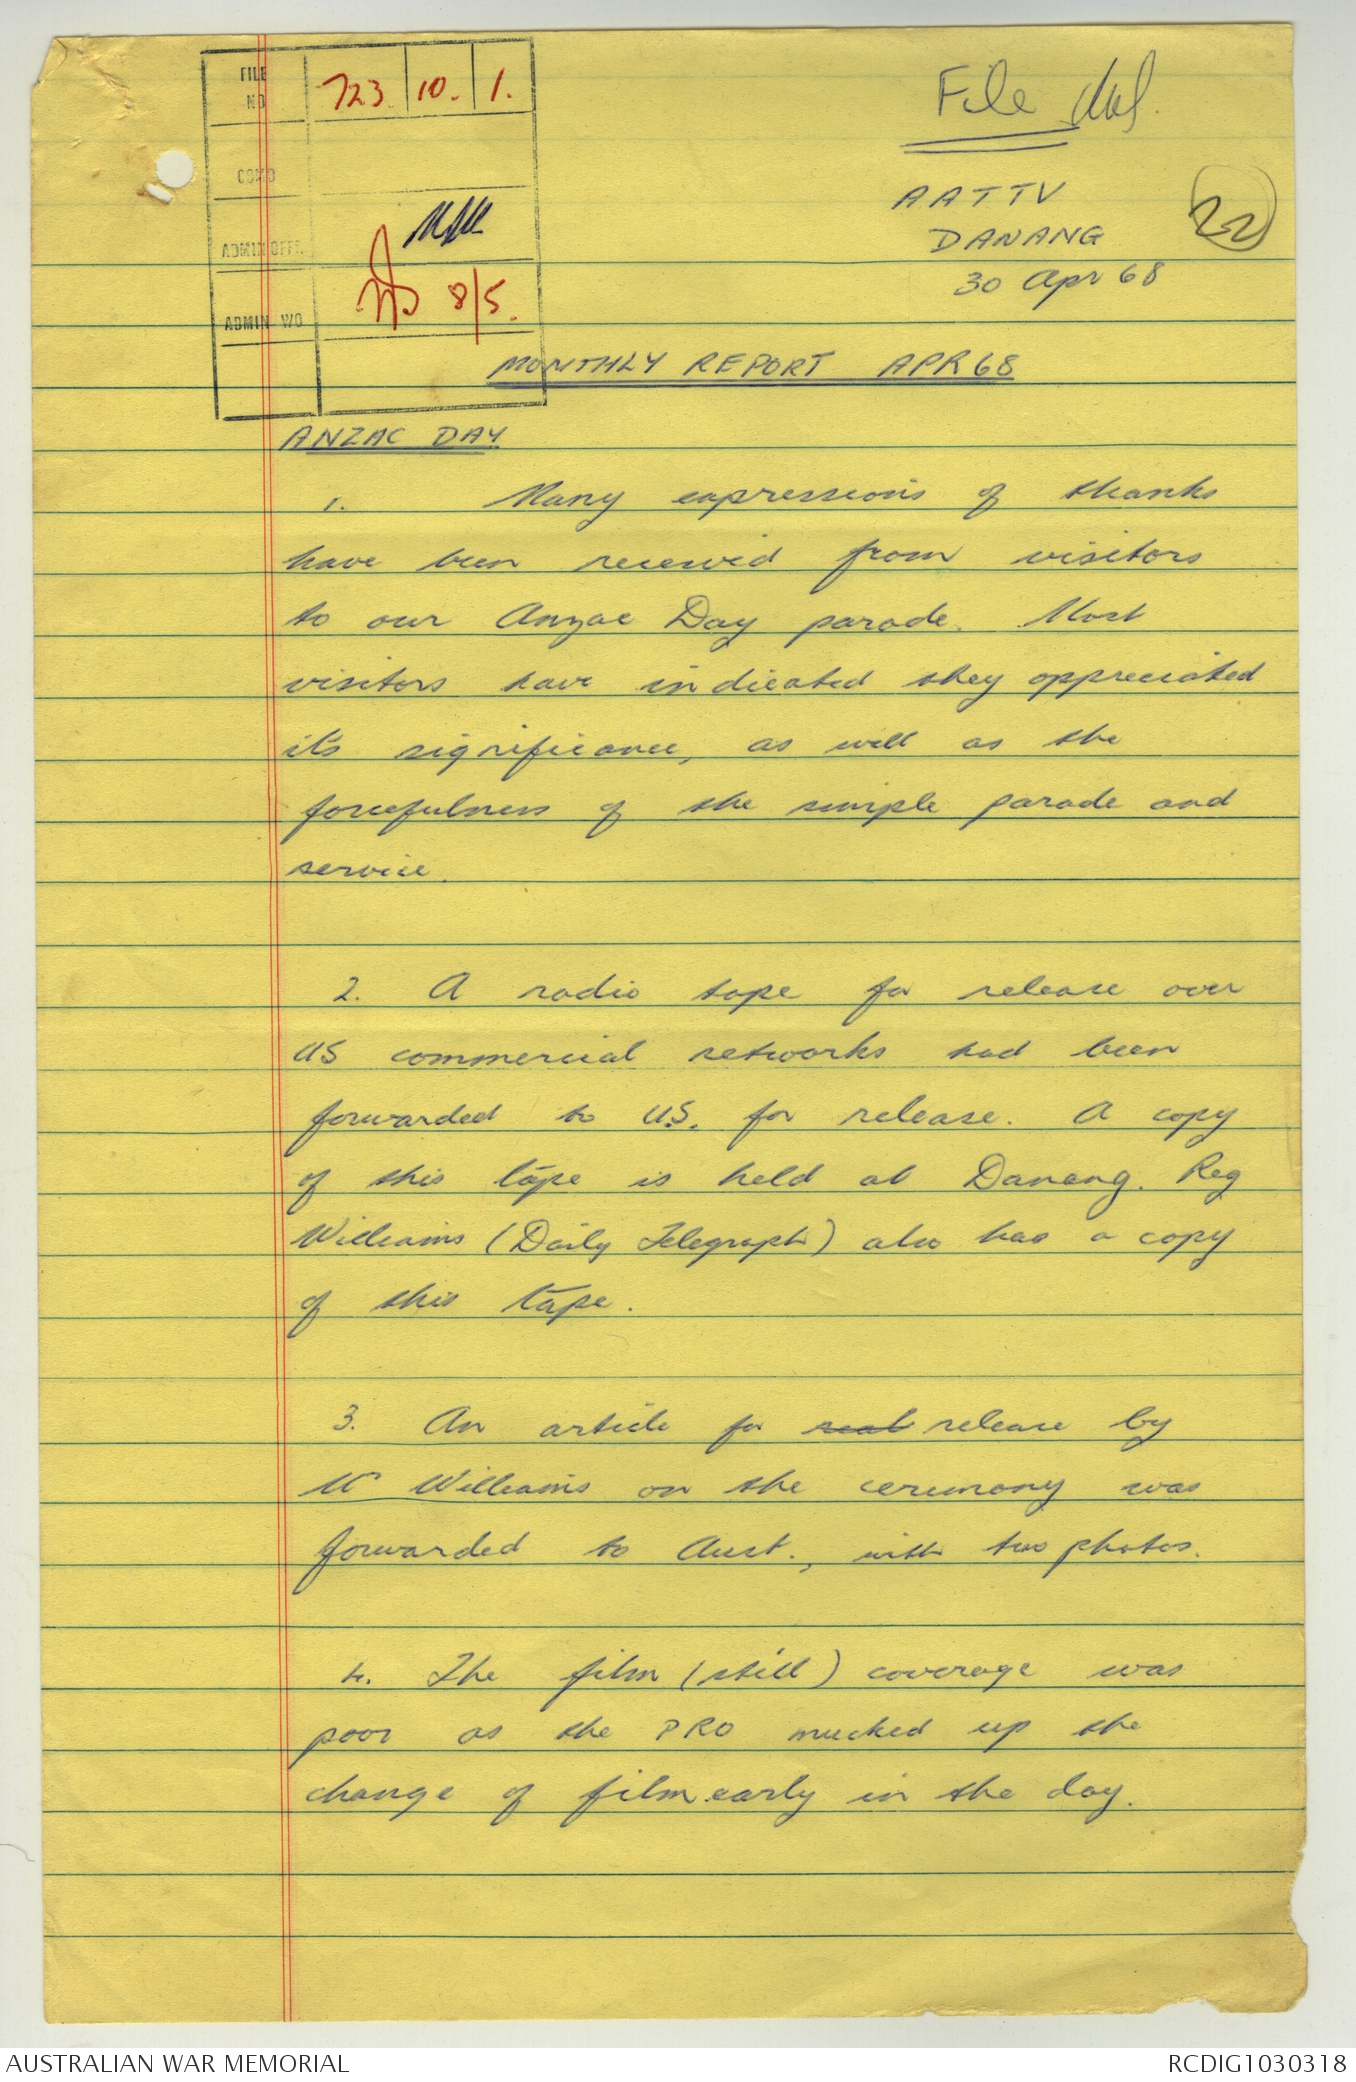 FILE NO 723. 10. 1.
COMD
ADMIN OFFR
ADMIN WO 8/5.
File
AATTV
DANANG
30 Apr 68
22
MONTHLY REPORT APR 68
ANZAC DAY
1. Many expressions of thanks
have been received from visitors
to our Anzac Day parade. Most
visitors have indicated they appreciated
its significance, as well as the
forcefulness of the simple parade and
service.
2. A radio tape for release over
US commercial networks had been
forwarded to U.S. for release. A copy
of this tape is held at Danang. Reg
Williams (Daily Telegraph) also has a copy
of this tape.
3. An article for real release by
Mr Williams on the ceremony was
forwarded to Aust., with two photos.
4. The film (still) coverage was
poor as the PRO mucked up the
change of film early in the day.
AUSTRALIAN WAR MEMORIAL
RCDIG1030318